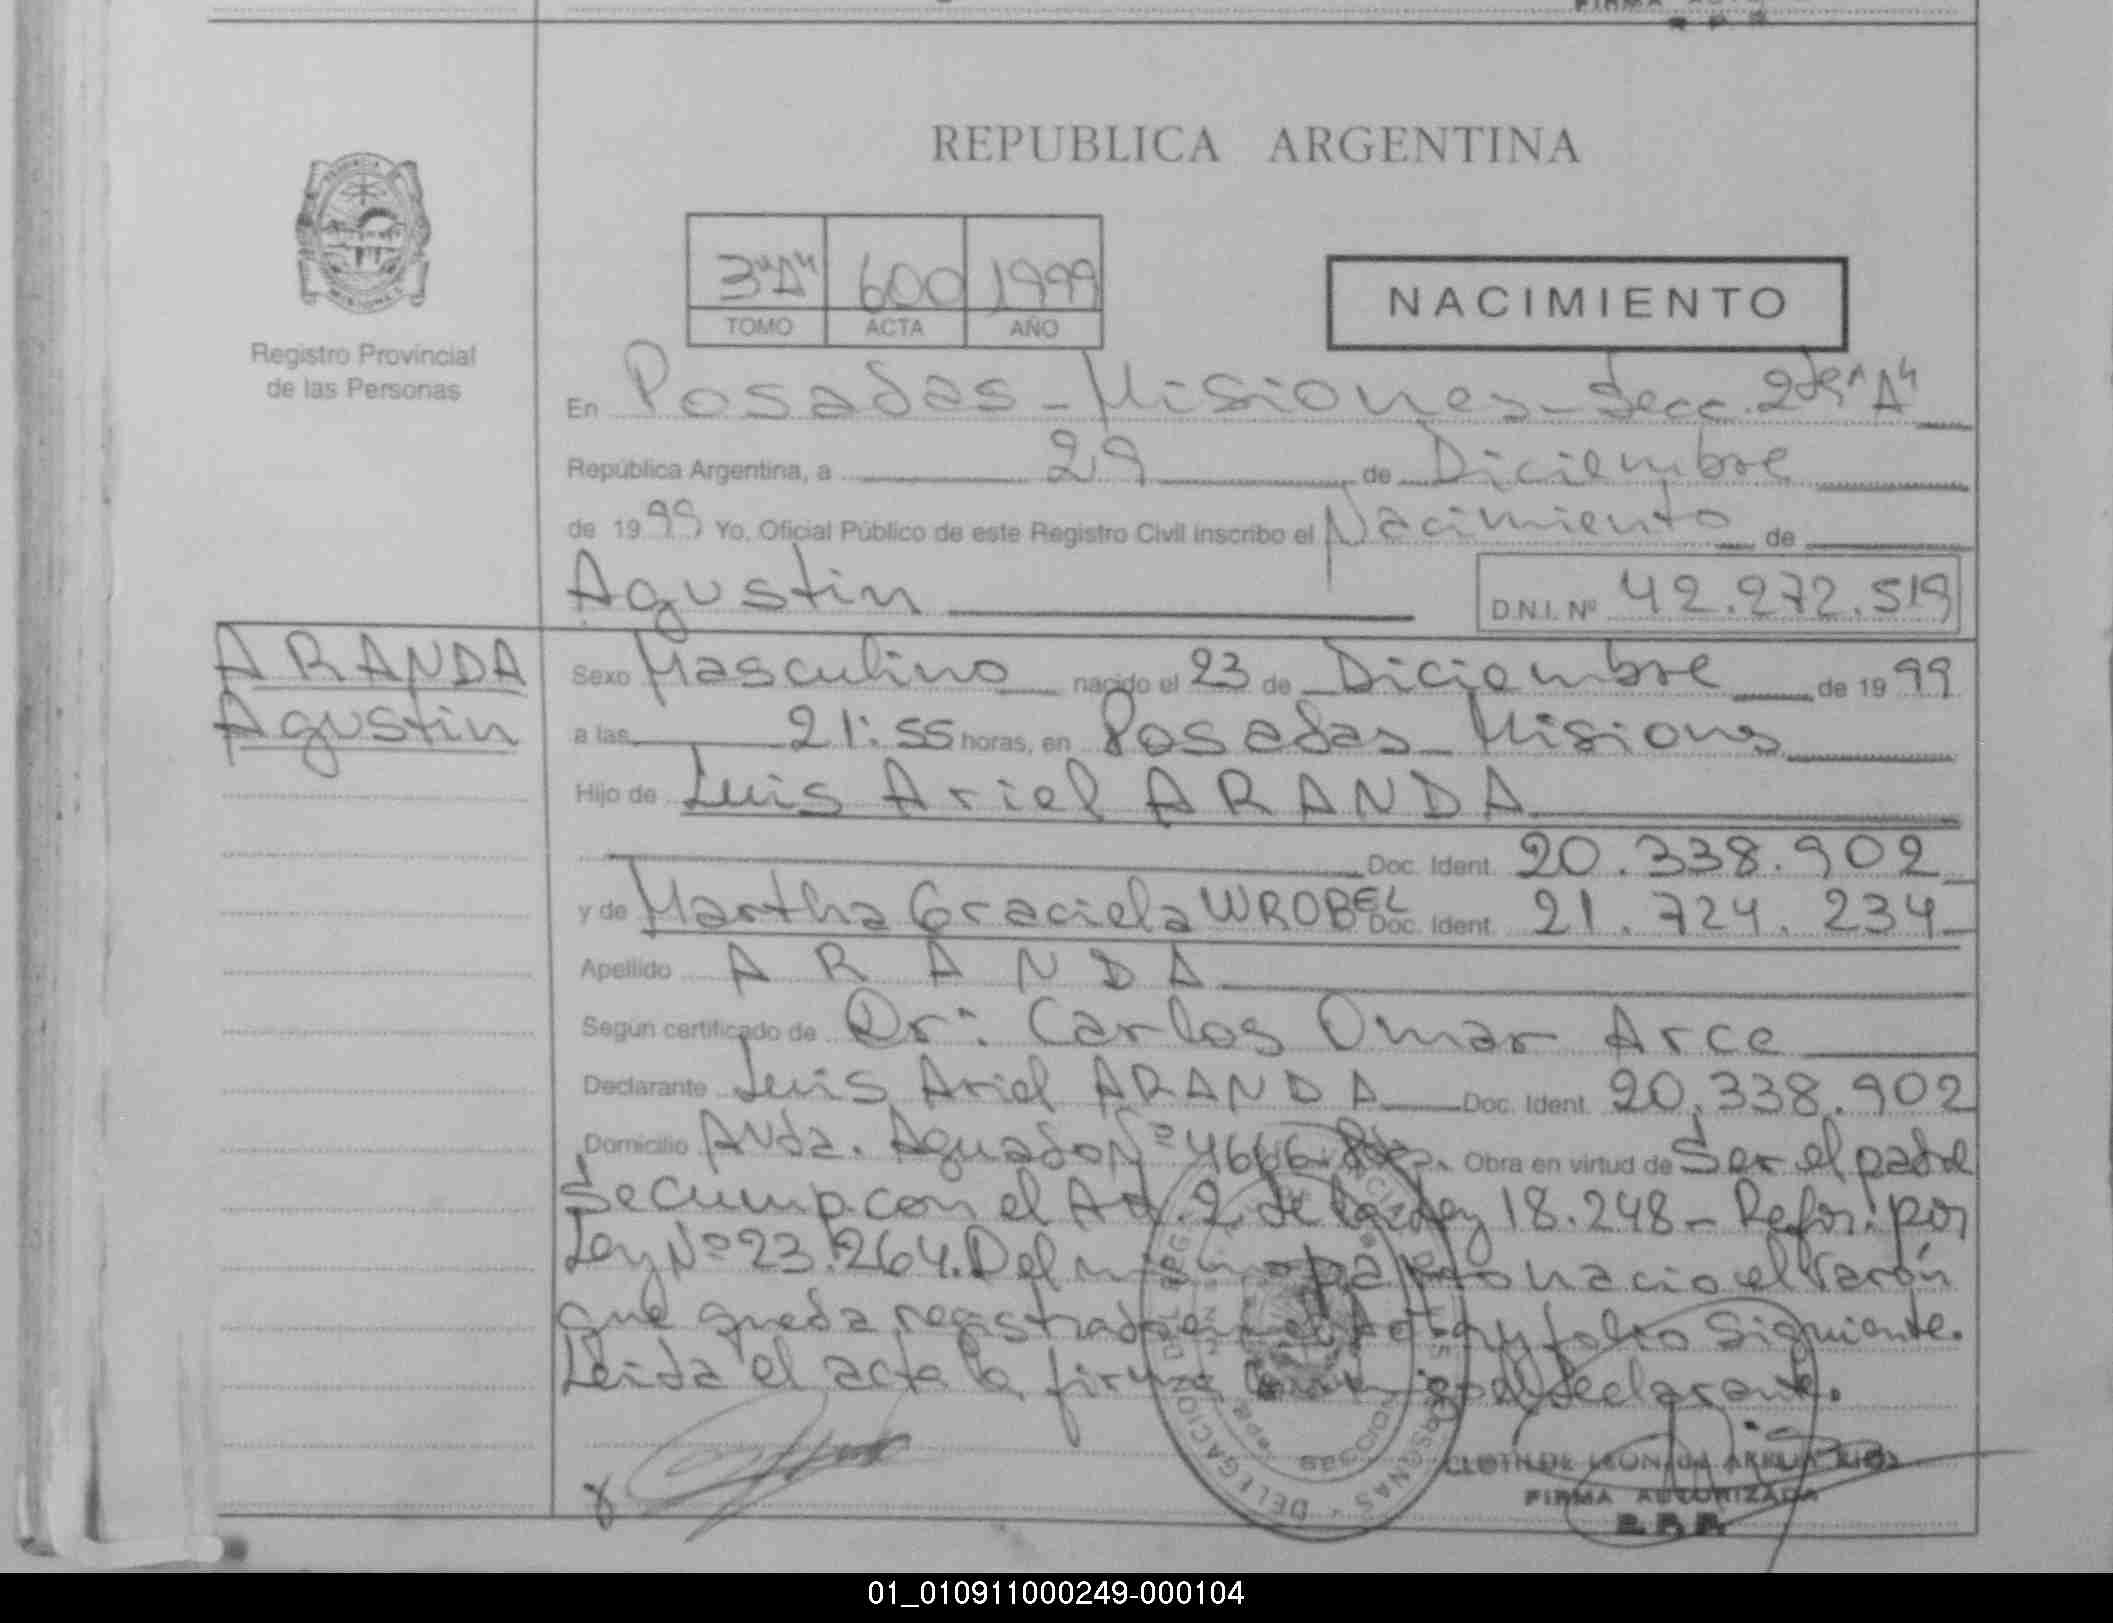 REPUBLICA ARGENTINA
Registro Provincial
de las Personas
3"A" 600 1999
TOMO ACTA AÑO
NACIMIENTO
En Posadas - Misiones - Secc. 2da "A"
República Argentina, a 29 de Diciembre
de 1999 Yo, Oficial Público de este Registro Civil inscribo el Nacimiento de
Agustin
D.N.I. Nº 42.272.519
ARANDA
Agustin
Sexo Masculino nacido el 23 de Diciembre de 1999
a las 21:55 horas, en Posadas Misiones
Hijo de Luis Ariel ARANDA
Doc. Ident. 20.338.902
y de Martha Graciela WROBEL Doc. Ident. 21.724.234
Apellido ARANDA
Según certificado de Dr: Carlos Omar Arce
Declarante Luis Ariel ARANDA Doc. Ident. 20.338.902
Domicilio Avda. Aguado Nº 4666 Obra en virtud de Ser el padre
Se Cump. con el Art. 2 de la Ley 18.248 - Refor. por
Ley Nº 23.264. Del mismo parto nacio el Varón
que queda registrado en el Acta y folio Siguiente.
Leida el acta la firma Conmigo el declarante.
FIRMA AUTORIZADA
01_010911000249-000104